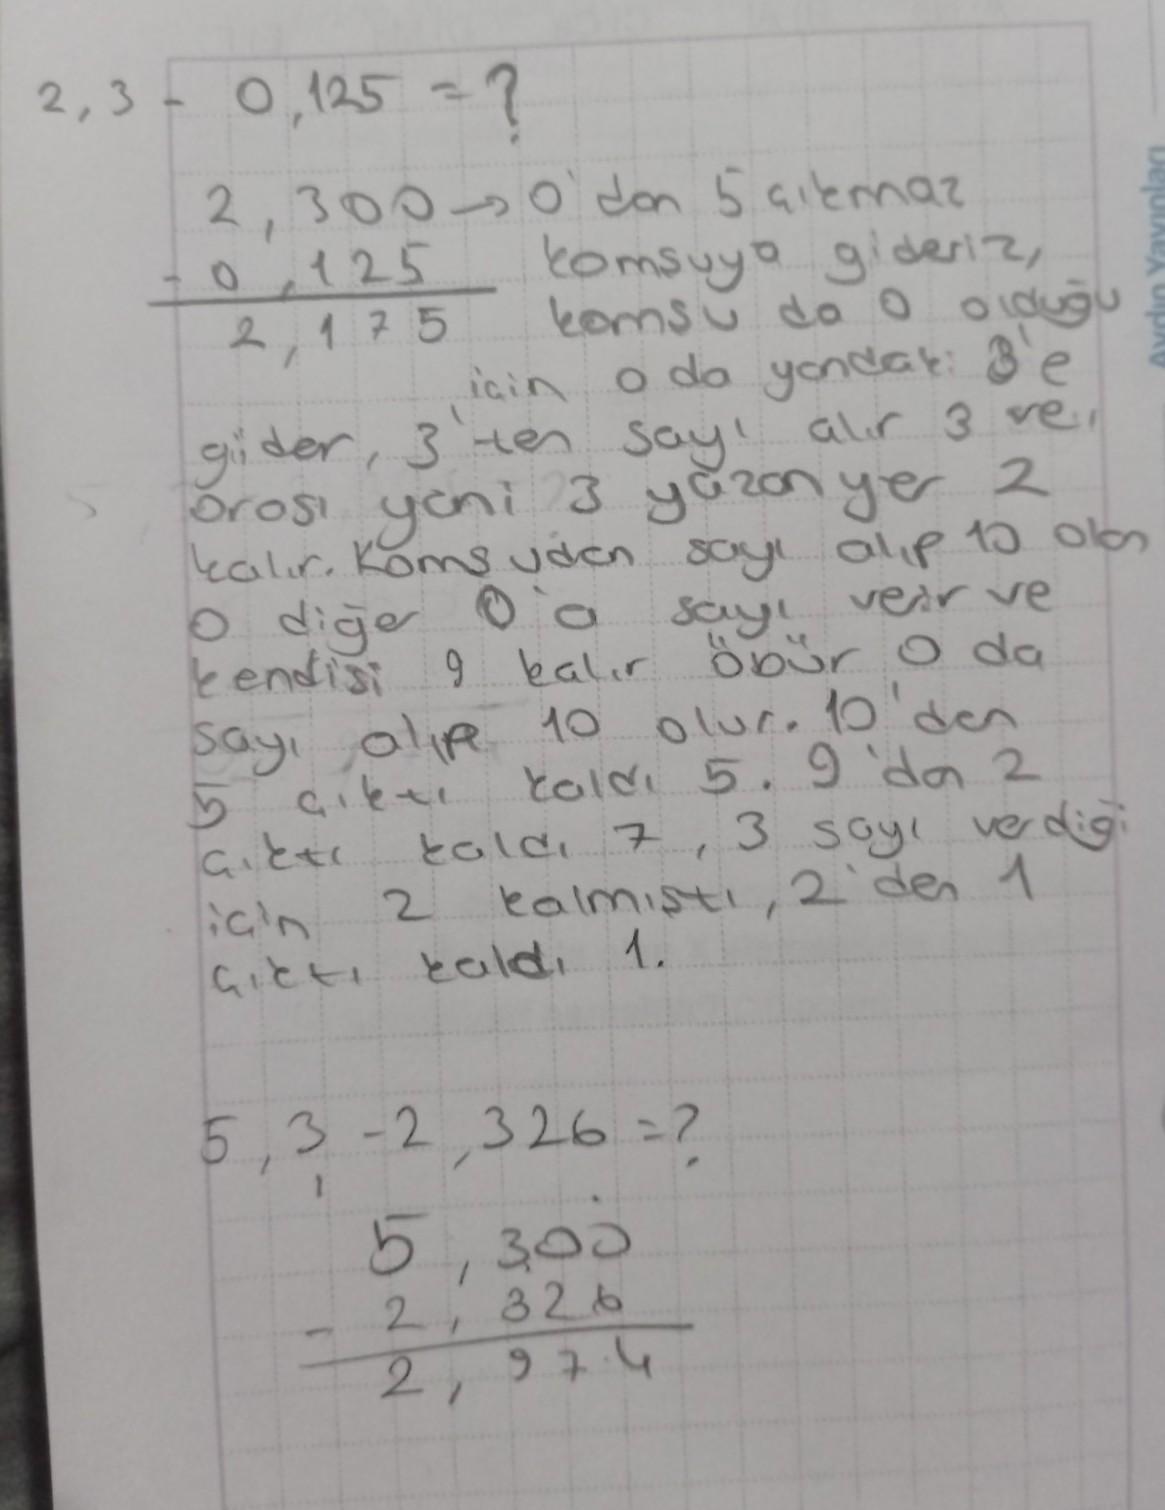 2,3 - 0,125 = ?
2,300 → 0'dan 5 çıkmaz
- 0,125 komsuya gideriz,
2,175 komsu da 0 olduğu
için o da yandaki 3'e
gider, 3'ten sayı alır 3 ve,
orosı yani 3 yazan yer 2
kalır. Komsudan sayı alıp 10 olan
0 diğer 0'a sayı verir ve
kendisi 9 kalır öbür 0 da
sayı alıp 10 olur. 10'den
5 çıktı kaldı 5. 9'dan 2
çıktı kaldı 7, 3 sayı verdiği
için 2 kalmıştı, 2'den 1
çıktı kaldı 1.
5,3 - 2,326 = ?
5,300
- 2,326
2,974
Aydın Yayınları